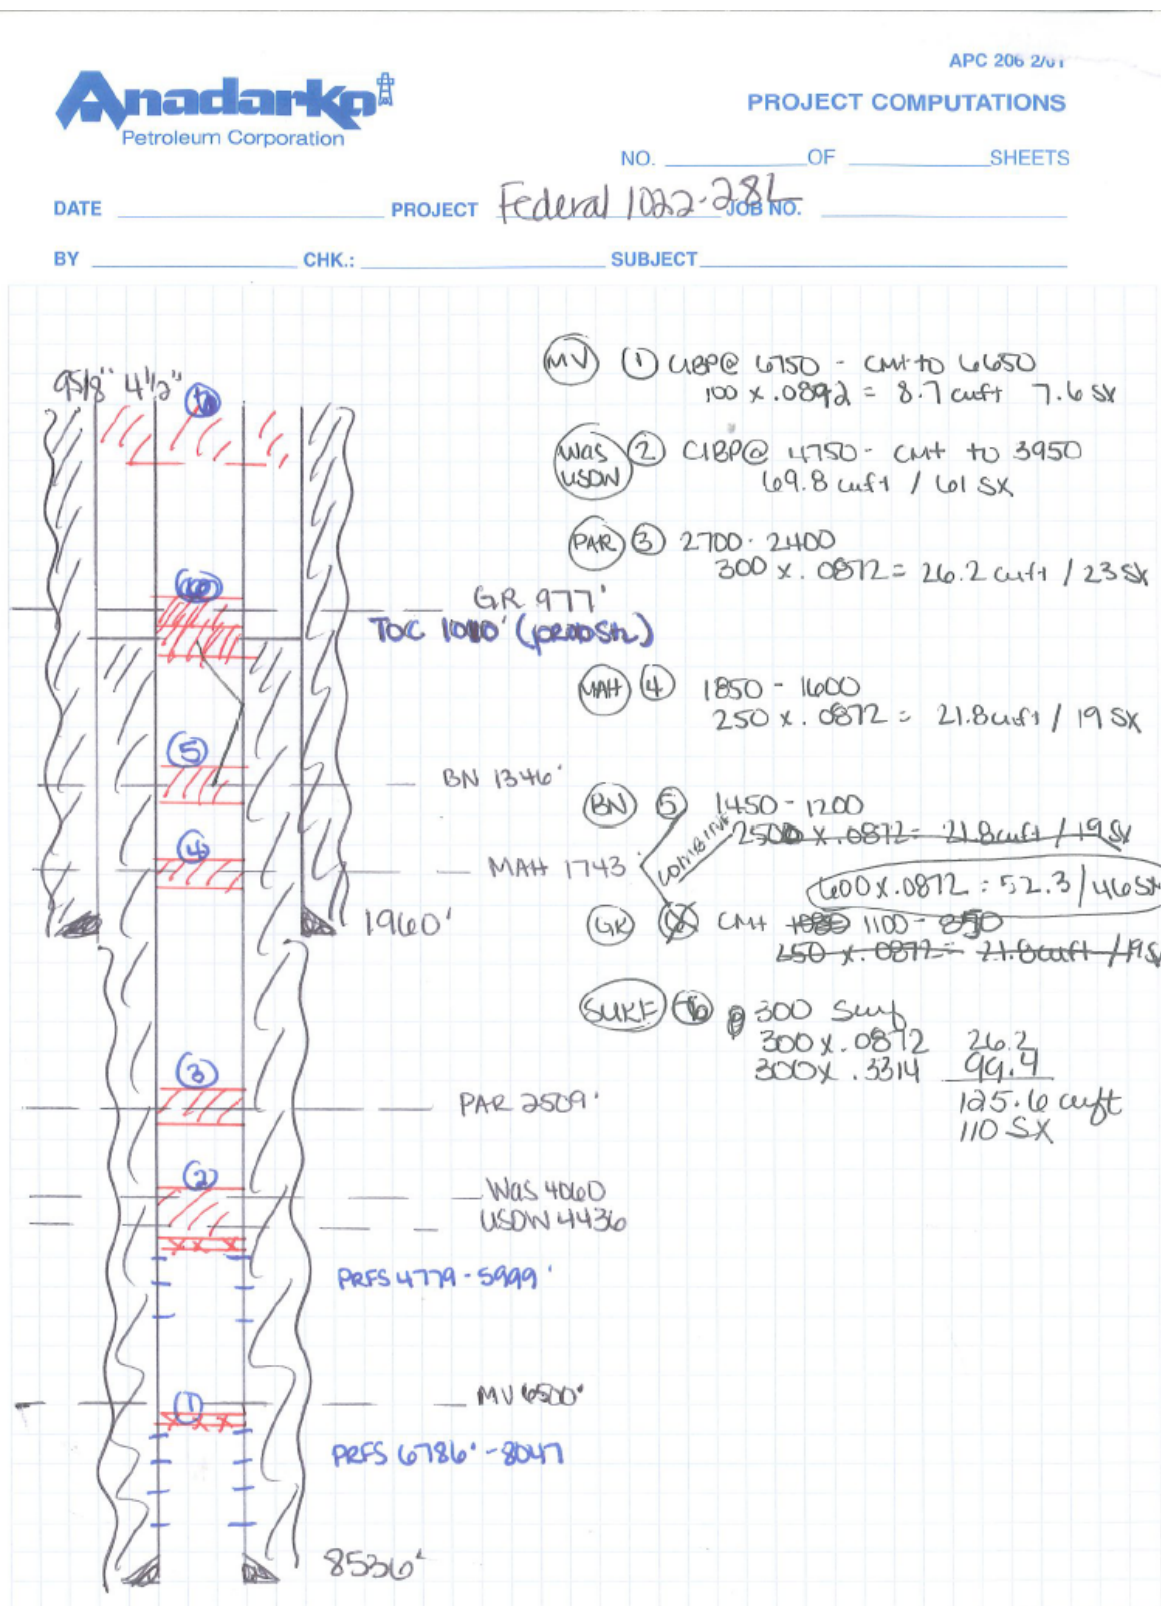 APC 206 2/01
Anadarko
Petroleum Corporation
PROJECT COMPUTATIONS
NO. OF SHEETS
DATE PROJECT Federal 1022-28L JOB NO.
BY CHK.: SUBJECT
9 5/8" 4 1/2"
GR 977'
TOC 1010' (prod Stg)
5
BN 1346'
4
MAH 1743'
1960'
3
PAR 2509'
2
WAS 4060
USDW 4436
PRFS 4779-5999'
1
MV 6500'
PRFS 6786'-8047
8536'
MV 1 CIBP@ 6750 - CMT to 6650
100 x .0892 = 8.7 cuft 7.6 SX
WAS
USDW 2 CIBP@ 4750 - CMT to 3950
69.8 cuft / 61 SX
PAR 3 2700-2400
300 x .0872 = 26.2 cuft / 23 SX
MAH 4 1850 - 1600
250 x .0872 = 21.8 cuft / 19 SX
BN 5 1450-1200
2500 x .0872 = 21.8 cuft / 19 SX
COMBINE
600 x .0872 = 52.3 / 46 SX
GR CMT 1080 1100-850
250 x .0872 = 21.8 cuft / 19 S
SURF 6 @ 300 Surf
300 x .0872 26.2
300 x .3314 99.4
125.6 cuft
110 SX